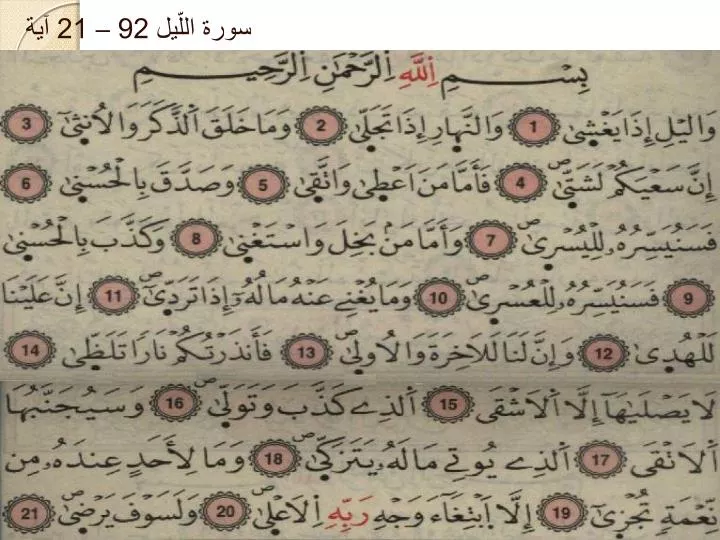 سورة اللّيل 92 – 21 آية
بِسْمِ اِللَّهِ اِلرَّحْمَٰنِ اِلرَّحِيمِ
وَاليْلِ إِذَا يَغْشَىٰ 1 وَالنَّهَارِ إِذَا تَجَلَّىٰ 2 وَمَا خَلَقَ اَلذَّكَرَ وَالُانثَىٰ 3
إِنَّ سَعْيَكُمْ لَشَتَّىٰ 4 فَأَمَّا مَنَ اَعْطَىٰ وَاتَّقَىٰ 5 وَصَدَّقَ بِالْحُسْنَىٰ 6
فَسَنُيَسِّرُهُۥ لِلْيُسْرَىٰ 7 وَأَمَّا مَنۢ بَخِلَ وَاسْتَغْنَىٰ 8 وَكَذَّبَ بِالْحُسْنَىٰ
9 فَسَنُيَسِّرُهُۥ لِلْعُسْرَىٰ 10 وَمَا يُغْنِے عَنْهُ مَالُهُۥٓ إِذَا تَرَدَّىٰٓ 11 إِنَّ عَلَيْنَا
لَلْهُدَىٰ 12 وَإِنَّ لَنَا لَلَاخِرَةَ وَالُاولَىٰ 13 فَأَنذَرْتُكُمْ نَارًا تَلَظَّىٰ 14
لَا يَصْلَيٰهَآ إِلَّا اَلَاشْقَى 15 اَلذِے كَذَّبَ وَتَوَلَّىٰ 16 وَسَيُجَنَّبُهَا
اَلَاتْقَى 17 اَلذِے يُوتِے مَالَهُۥ يَتَزَكَّىٰ 18 وَمَا لِأَحَدٍ عِندَهُۥ مِن
نِّعْمَةٍ تُجْزَىٰٓ 19 إِلَّا اَبْتِغَآءَ وَجْهِ رَبِّهِ اِلَاعْلَىٰ 20 وَلَسَوْفَ يَرْضَىٰ 21